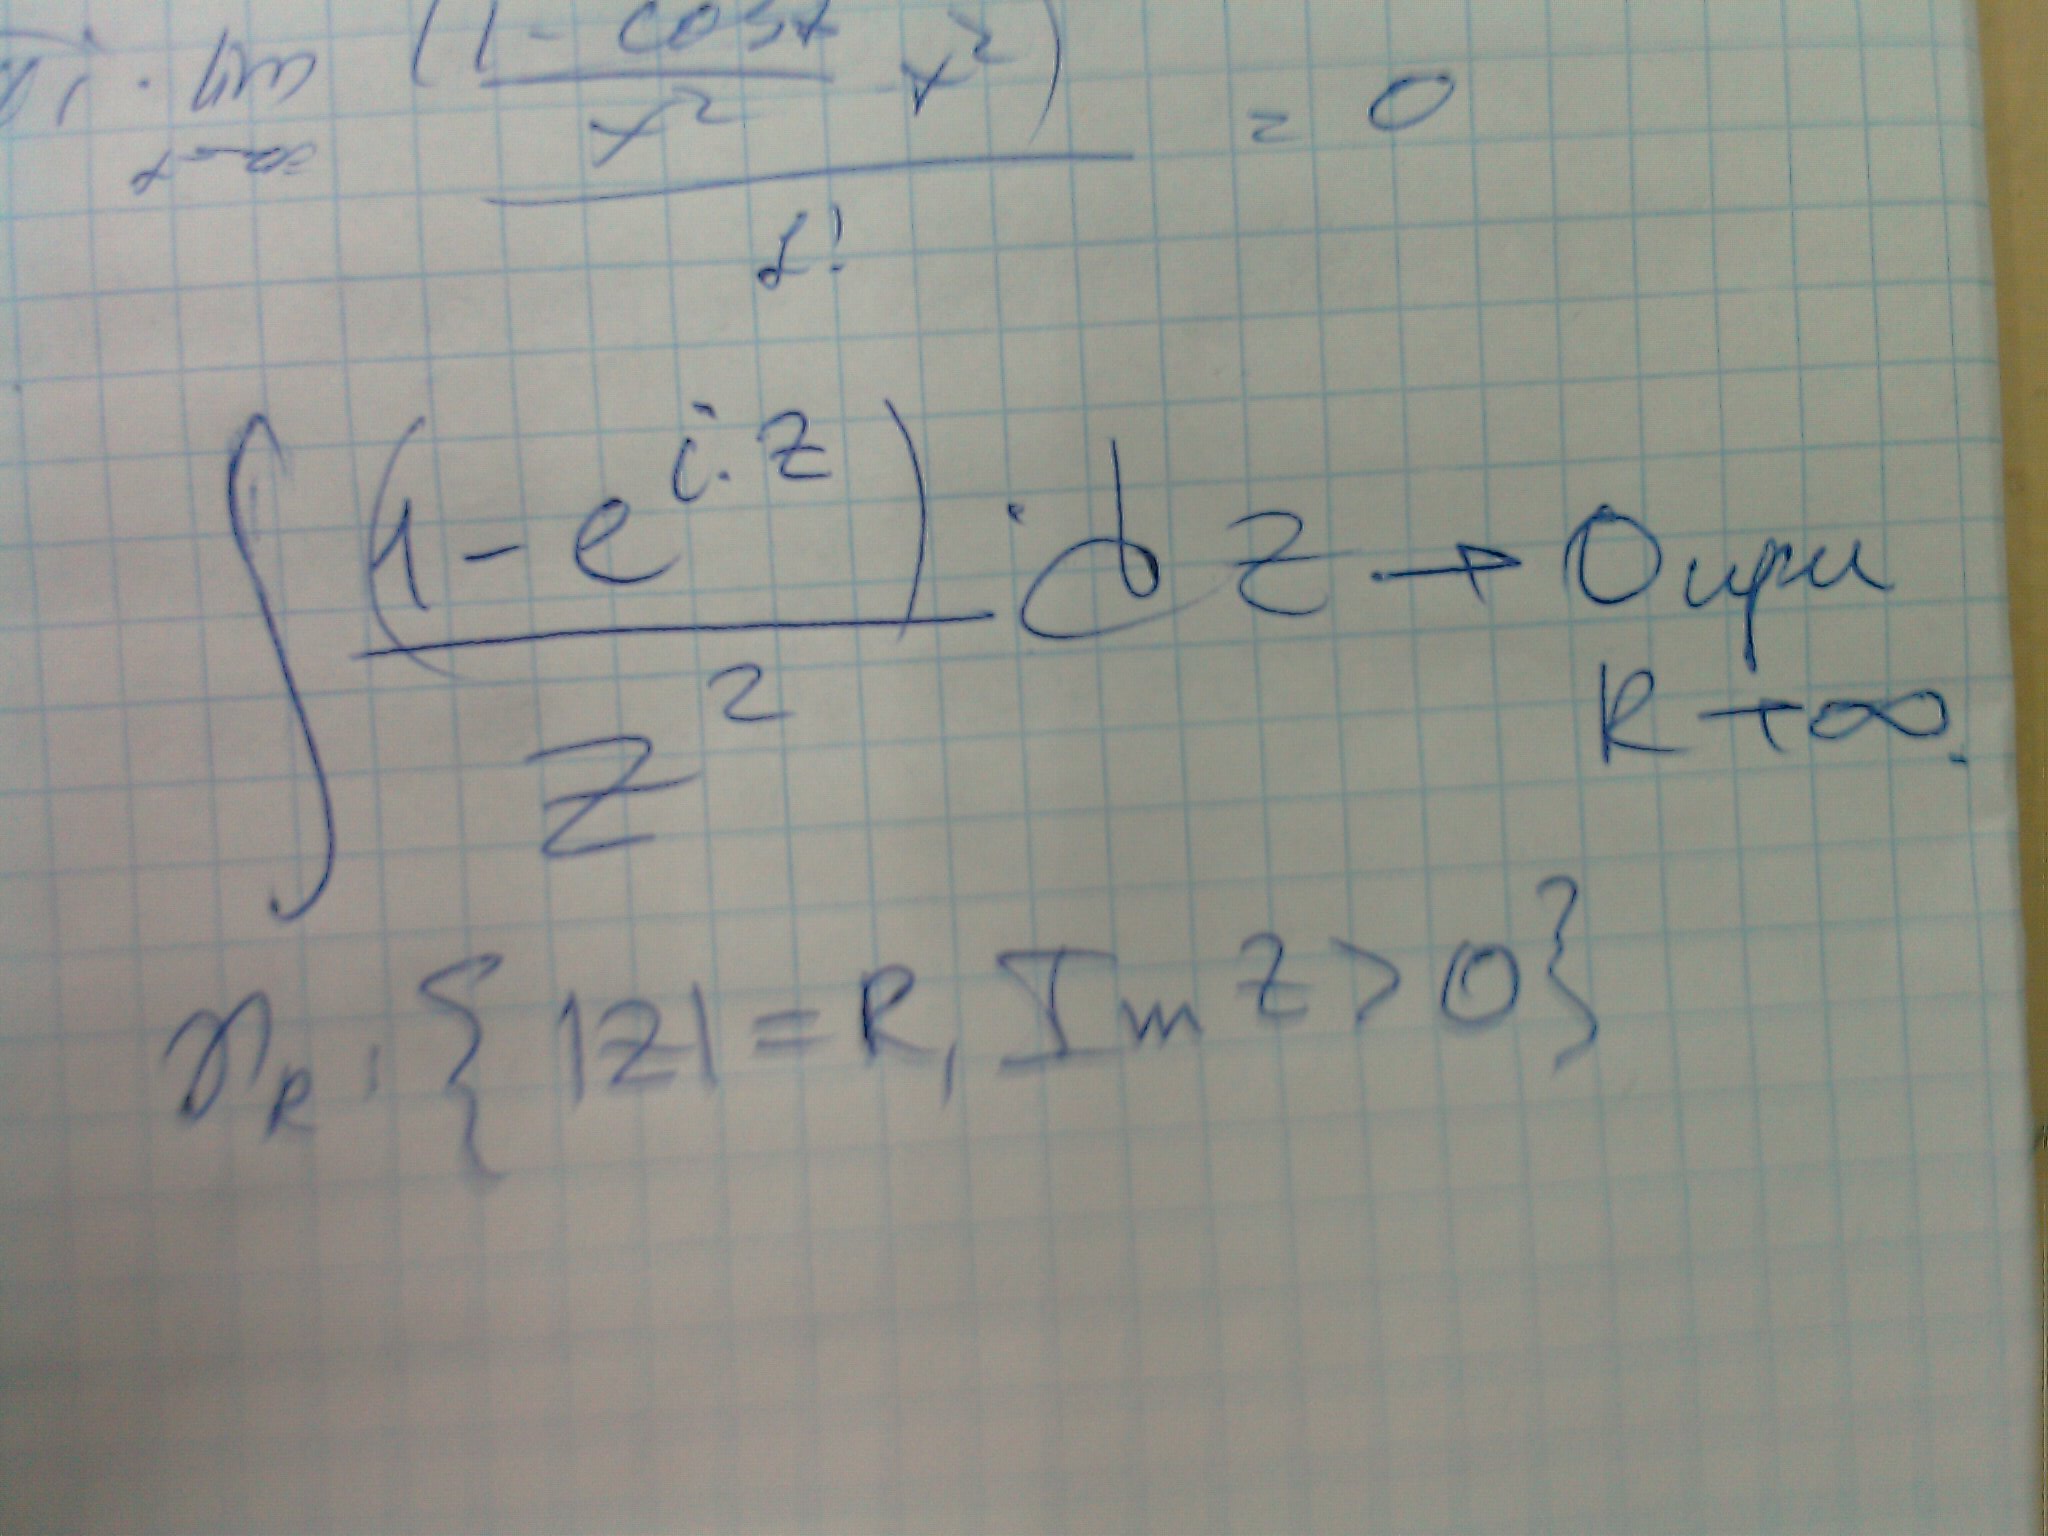 i · lim (1 - cosx / x² · x²) / 2! = 0
x→∞
∫ (1 - e^{i·z}) / z² · dz → 0 при
R → ∞.
γ_R : { |z| = R, Im z > 0 }